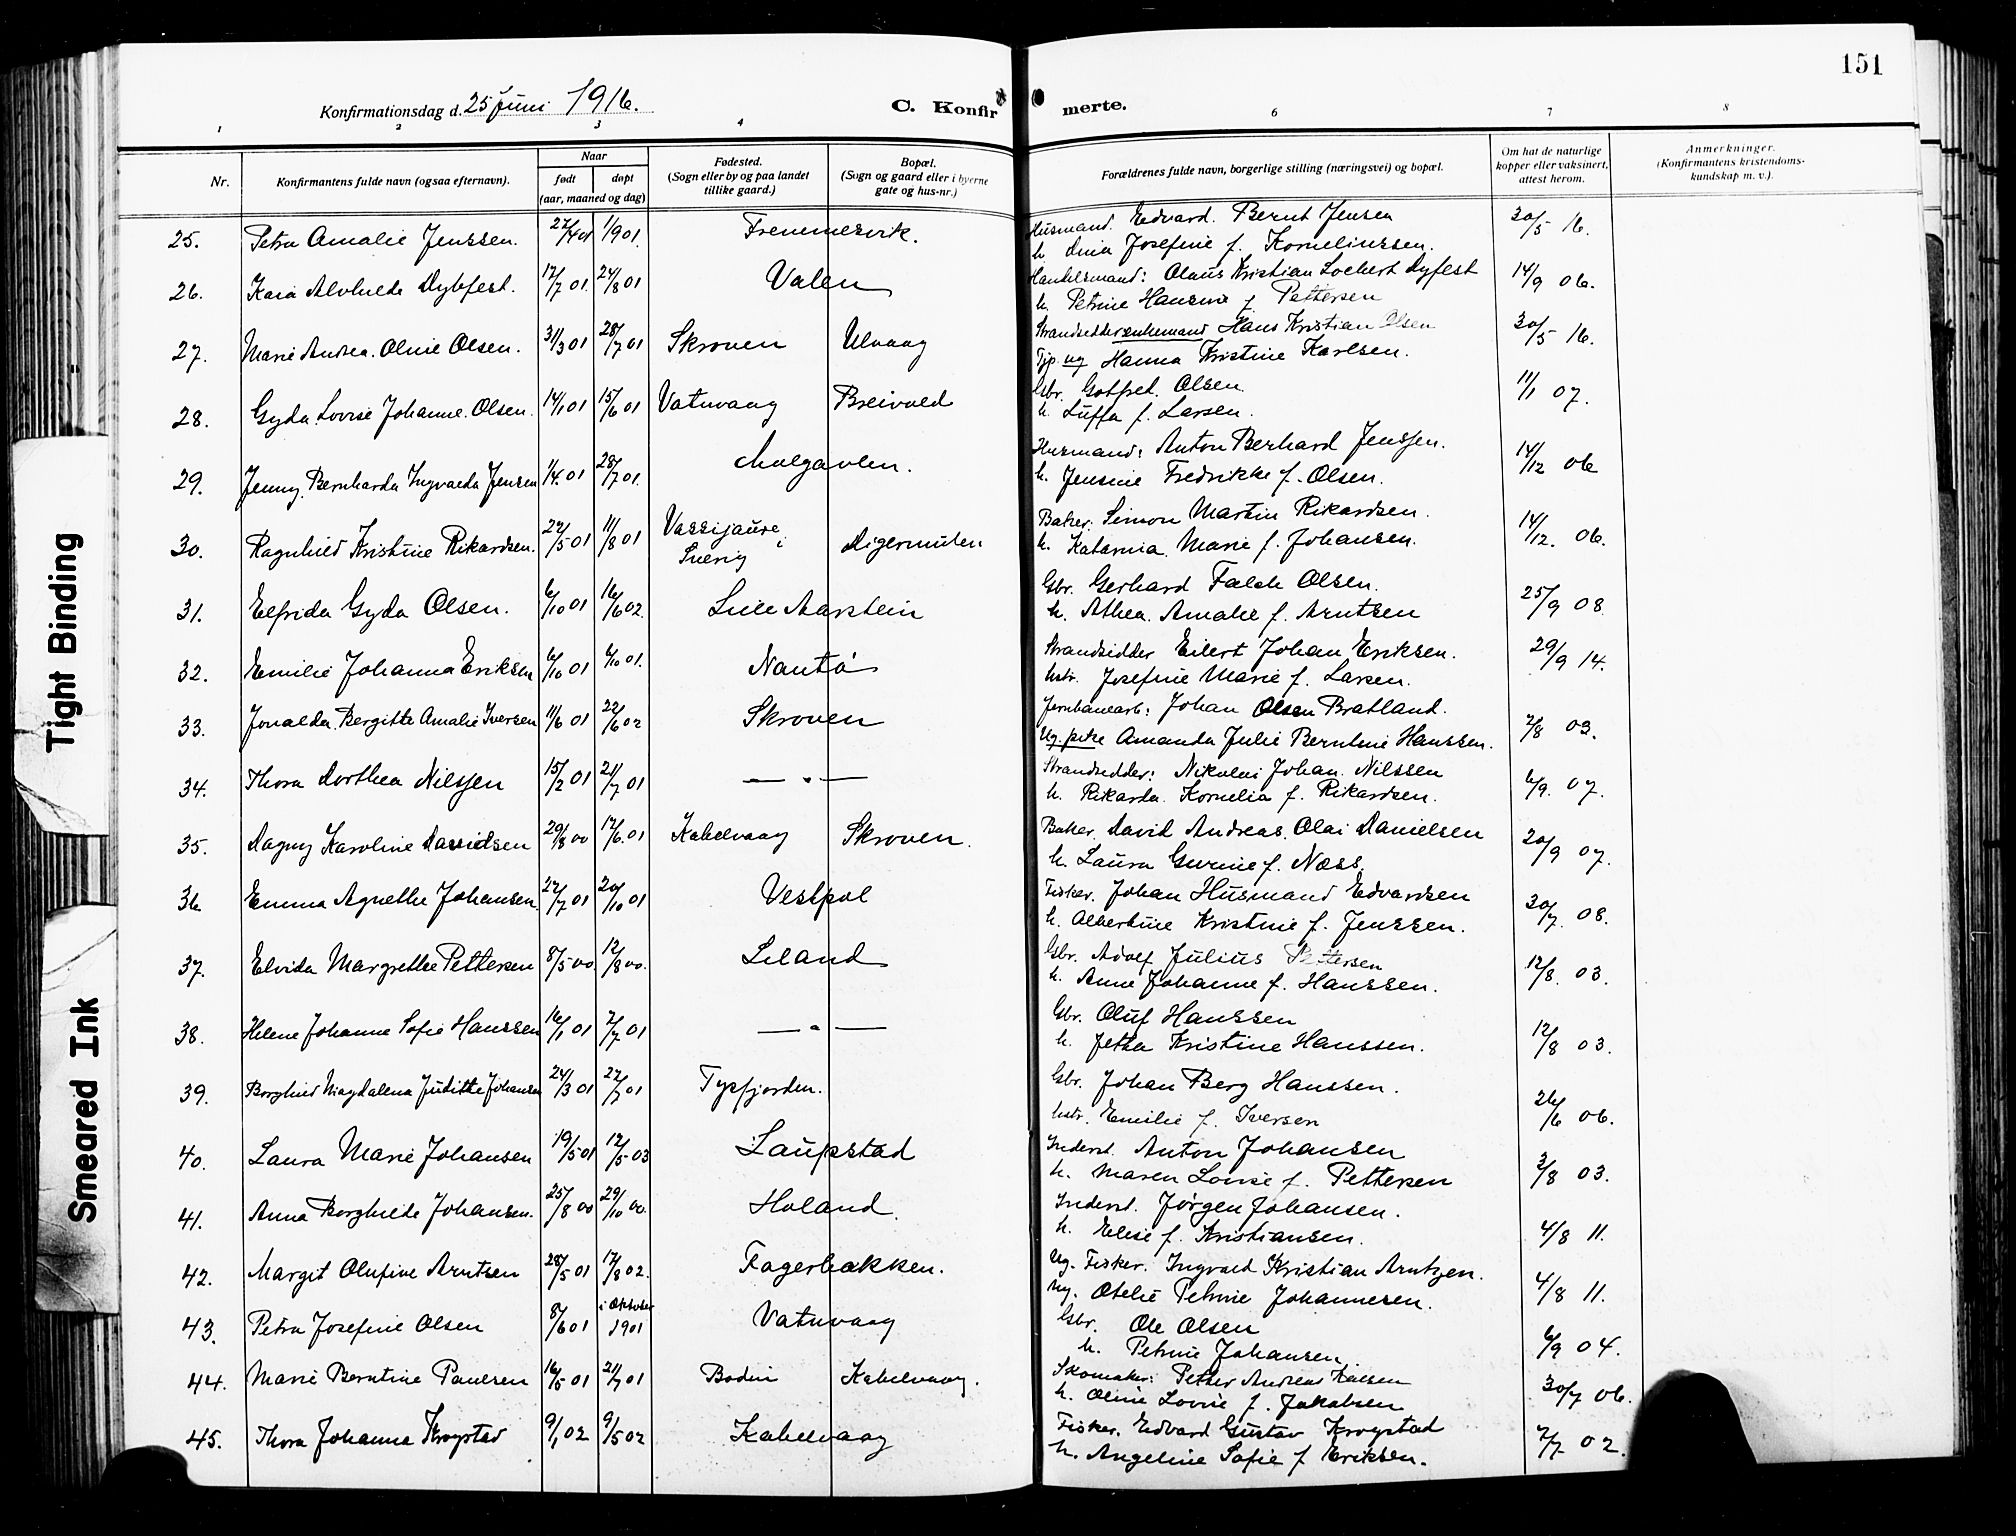 151
Konfirmationsdag d. 25 Juni 1916.
C. Konfirmerte.
1 2 3 4 6 7 8
Nr.
Konfirmantens fulde navn (ogsaa efternavn).
Naar
født
døpt
(aar, maaned og dag)
Fødested.
(Sogn eller by og paa landet
tillike gaard.)
Bopæl.
(Sogn og gaard eller i byerne
gate og hus-nr.)
Forældrenes fulde navn, borgerlige stilling (næringsvei) og bopæl.
Om hat de naturlige
kopper eller vaksinert,
attest herom.
Anmerkninger.
(Konfirmantens kristendoms-
kundskap m. v.).
25. Petra Amalie Jenssen. 27/4 01 1/9 01. Husmand. Edvard. Bernt Jensen 30/5 16.
h. Josefine f. Korneliussen.
26. Kaia Alvhilda Dybfest. 17/7 01. 24/8 01 Valen Handelsmand: Olaus Kristian Lockert Dyfest 14/9 06.
h. Petrine Hansine f. Pettersen
27. Marie Andrea. Oline Olsen. 31/3 01 28/7 01 Skroven Ulvaag Strandsidder enkemand Hans Kristian Olsen 30/5 16.
Tjp. ug Hanna Kristine Karlsen.
28. Gyda Lovise Johanne. Olsen. 14/1 01 15/6 01 Vatnvaag Breivold Gbr. Gotfred. Olsen. 11/1 07.
h. Luffa f. Larsen.
29. Jenny. Bernharda Ingvalda Jensen 1/4. 01 28/7 01. Molgavlen. Husmand: Anton Berhard Jenssen. 14/12 06
h. Jensine Fredrikke f. Olsen.
30. Ragnhild Kristine Rikardsen. 22/5 01 11/8 01 Vassijaure i Digermulen Baker: Simon Martin Rikardsen. 14/12. 06.
Sverig h. Katarina Marie f. Johansen.
31. Elfrida Gyda Olsen. 6/10 01 16/6 02. Lille Aarstein Gbr. Gerhard Falch Olsen. 25/9 08.
h. Althea. Amalie f. Arntsen
32. Emilie Johanna Eriksen 6/10 01 6/10 01. Nautø Strandsidder Eilert Johan Eriksen. 29/9 14.
hstr. Josefine Marie f. Larsen.
33. Jonalda. Bergitte Amalie Iversen 11/6 01 22/6 02 Skroven Jernbanearb: Johan Olsen Bratland. 7/8 03.
Ug. pike Amanda Julie Berntine Hanssen.
34. Thora Dorthea Nilssen 15/2 01 21/7 01 — " — Strandsidder: Nikolai Johan. Nilssen 6/9. 07.
h. Rikarda. Kornelia f. Rikardsen.
35. Dagny Karoline Davidsen 29/8 00 17/6. 01 Kabelvaag Skroven. Baker. David Andreas. Olai Danielsen 20/9 07.
h. Laura Gurine f. Næss.
36 Emma Agnethe Johansen. 27/7 01 20/10 01 Vestpol Fisker. Johan Husmand Edvardsen 30/7. 08.
h. Albertine Kristine f. Jenssen.
37. Elvida Margrethe Pettersen 8/5 00. 12/8 00. Liland Gbr. Adolf Julius Pettersen 12/8. 03.
h. Anne Johanne f. Hanssen.
38. Helene Johanne Sofie Hanssen 16/1 01 7/7 01 — " — Gbr. Oluf Hanssen 12/8 03.
h. Jetta Kristine Hanssen.
39. Borghild Magdalena Juditte Johansen 24/3 01 22/7 01 Tysfjorden. Gbr. Johan Berg Hanssen. 26/6 06.
hstr. Emilie f. Iversen
40. Laura Marie Johansen 19/5 01 12/5 03 Laupstad Inderst. Anton Johansen 3/8 03.
h. Maren Lovise f. Pettersen
41. Anna Borghilde Johansen. 25/8 00 29/10 00. Holand. Inderst. Jørgen Johansen. 4/8 11.
h. Elise f. Kristiansen.
42. Margit Olufine Arntsen 28/5 01 17/8 02. Fagerbakken. Ug. Fisker. Ingvald Kristian Arntzen. 4/8 11.
Ug. Otelie Petrine Johannesen.
43. Petra Josefine Olsen 8/6 01 i Oktober 1901 Vatnvaag Gbr. Ole Olsen 6/9 04.
h. Petrine Johansen.
44. Marie Berntine Paulsen 16/5 01 21/7 01 Bodin Kabelvaag. Skomaker: Petter Andreas 30/7 06.
h. Oline Lovise f. Jakobsen
45. Thora Johanna Krogstad 9/1 02 9/5 02 Kabelvaag Fisker. Edvard Gustav Krogstad 7/7 02.
h. Angeline Sofie f Eriksen.
Tight Binding
Smeared Ink